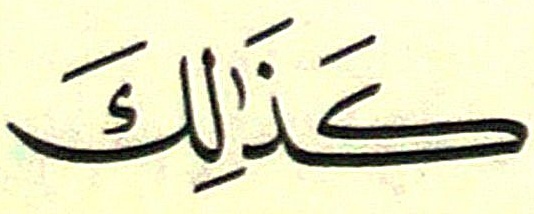 كَذَٰلِكَ